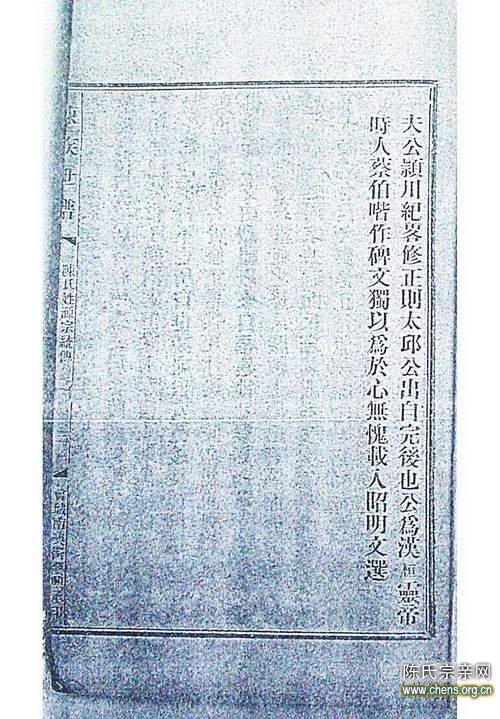 夫公頴川紀畧修正則太邱公出自完後也公爲漢桓靈帝
時人蔡伯喈作碑文獨以爲於心無愧載入昭明文選
族世譜
陳氏姓源宗統傳
陈氏宗亲网
www.chens.org.cn